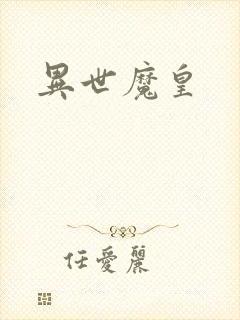 異世魔皇
任愛麗